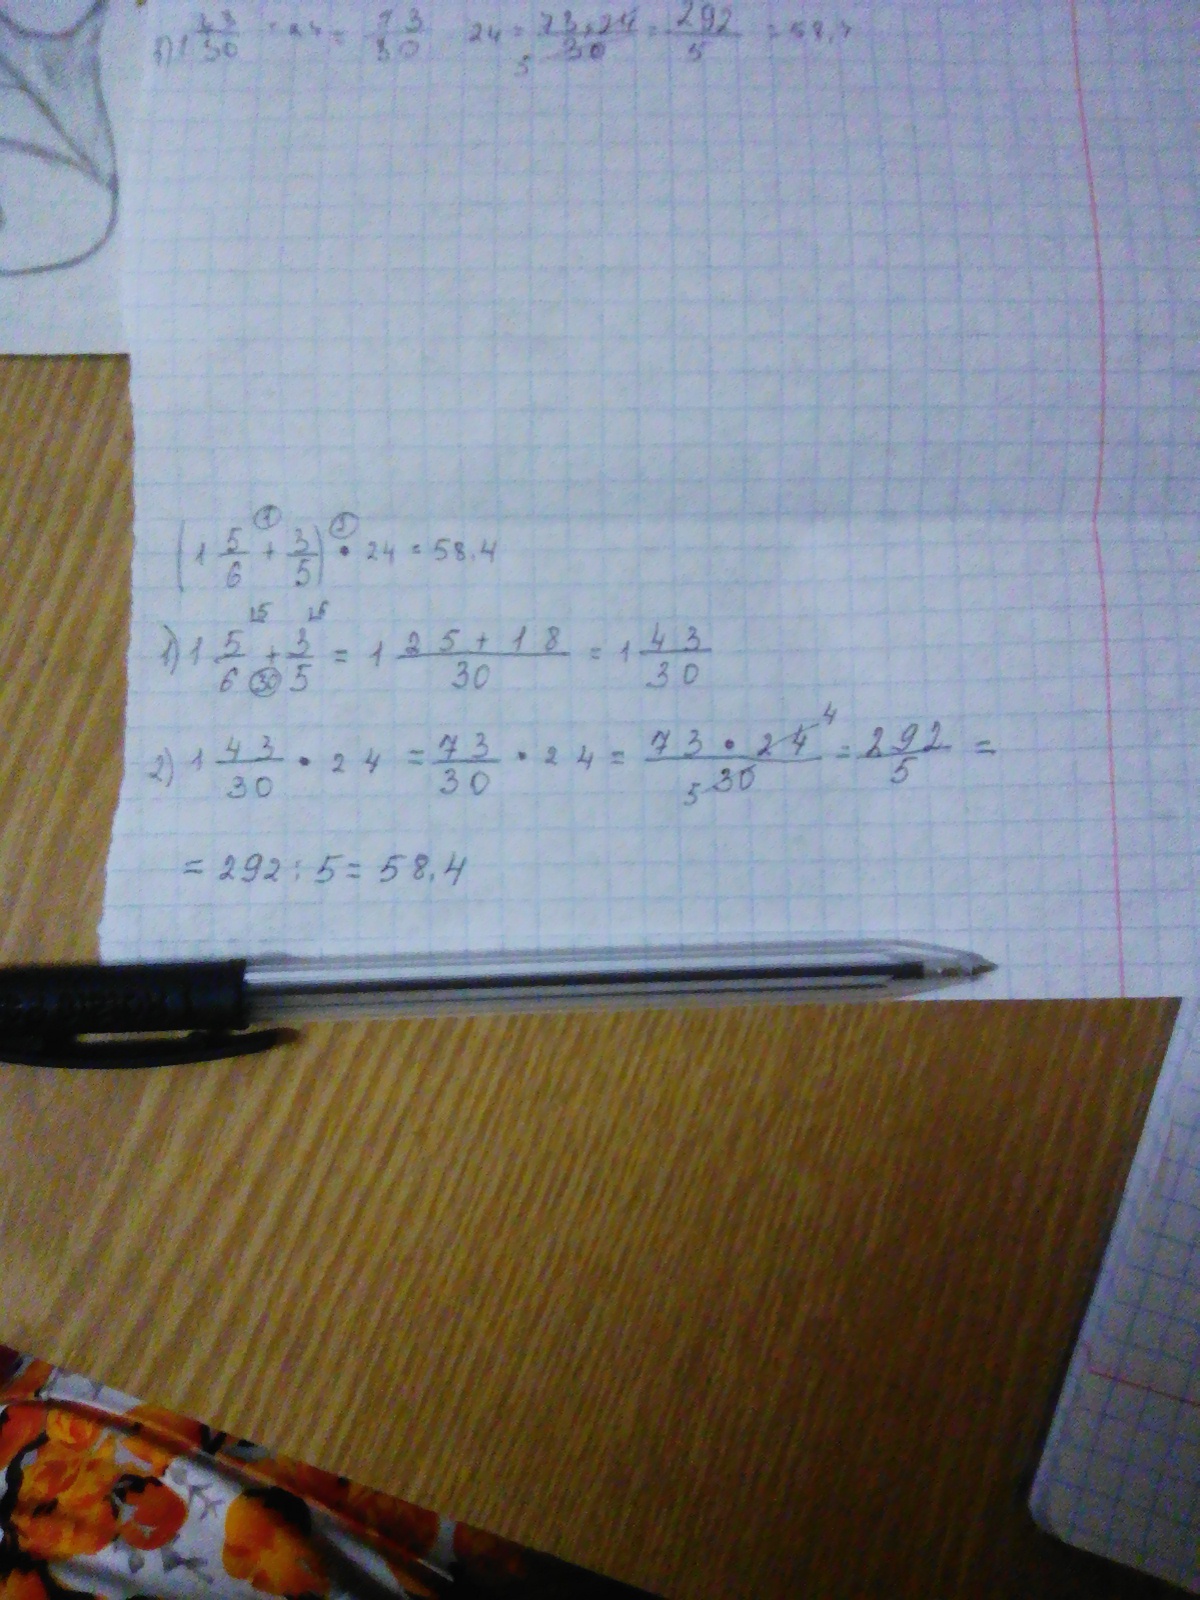 1) 1 43/30 · 24 = 73/30 24 = 73·24/30 = 292/5 = 58,4
5
1 2
(1 5/6 + 3/5) · 24 = 58,4
1) 1 5/6 + 3/5 = 1 25+18/30 = 1 43/30
30
2) 1 43/30 · 24 = 73/30 · 24 = 73 · 24/30 = 292/5 =
4
5
= 292 : 5 = 58,4